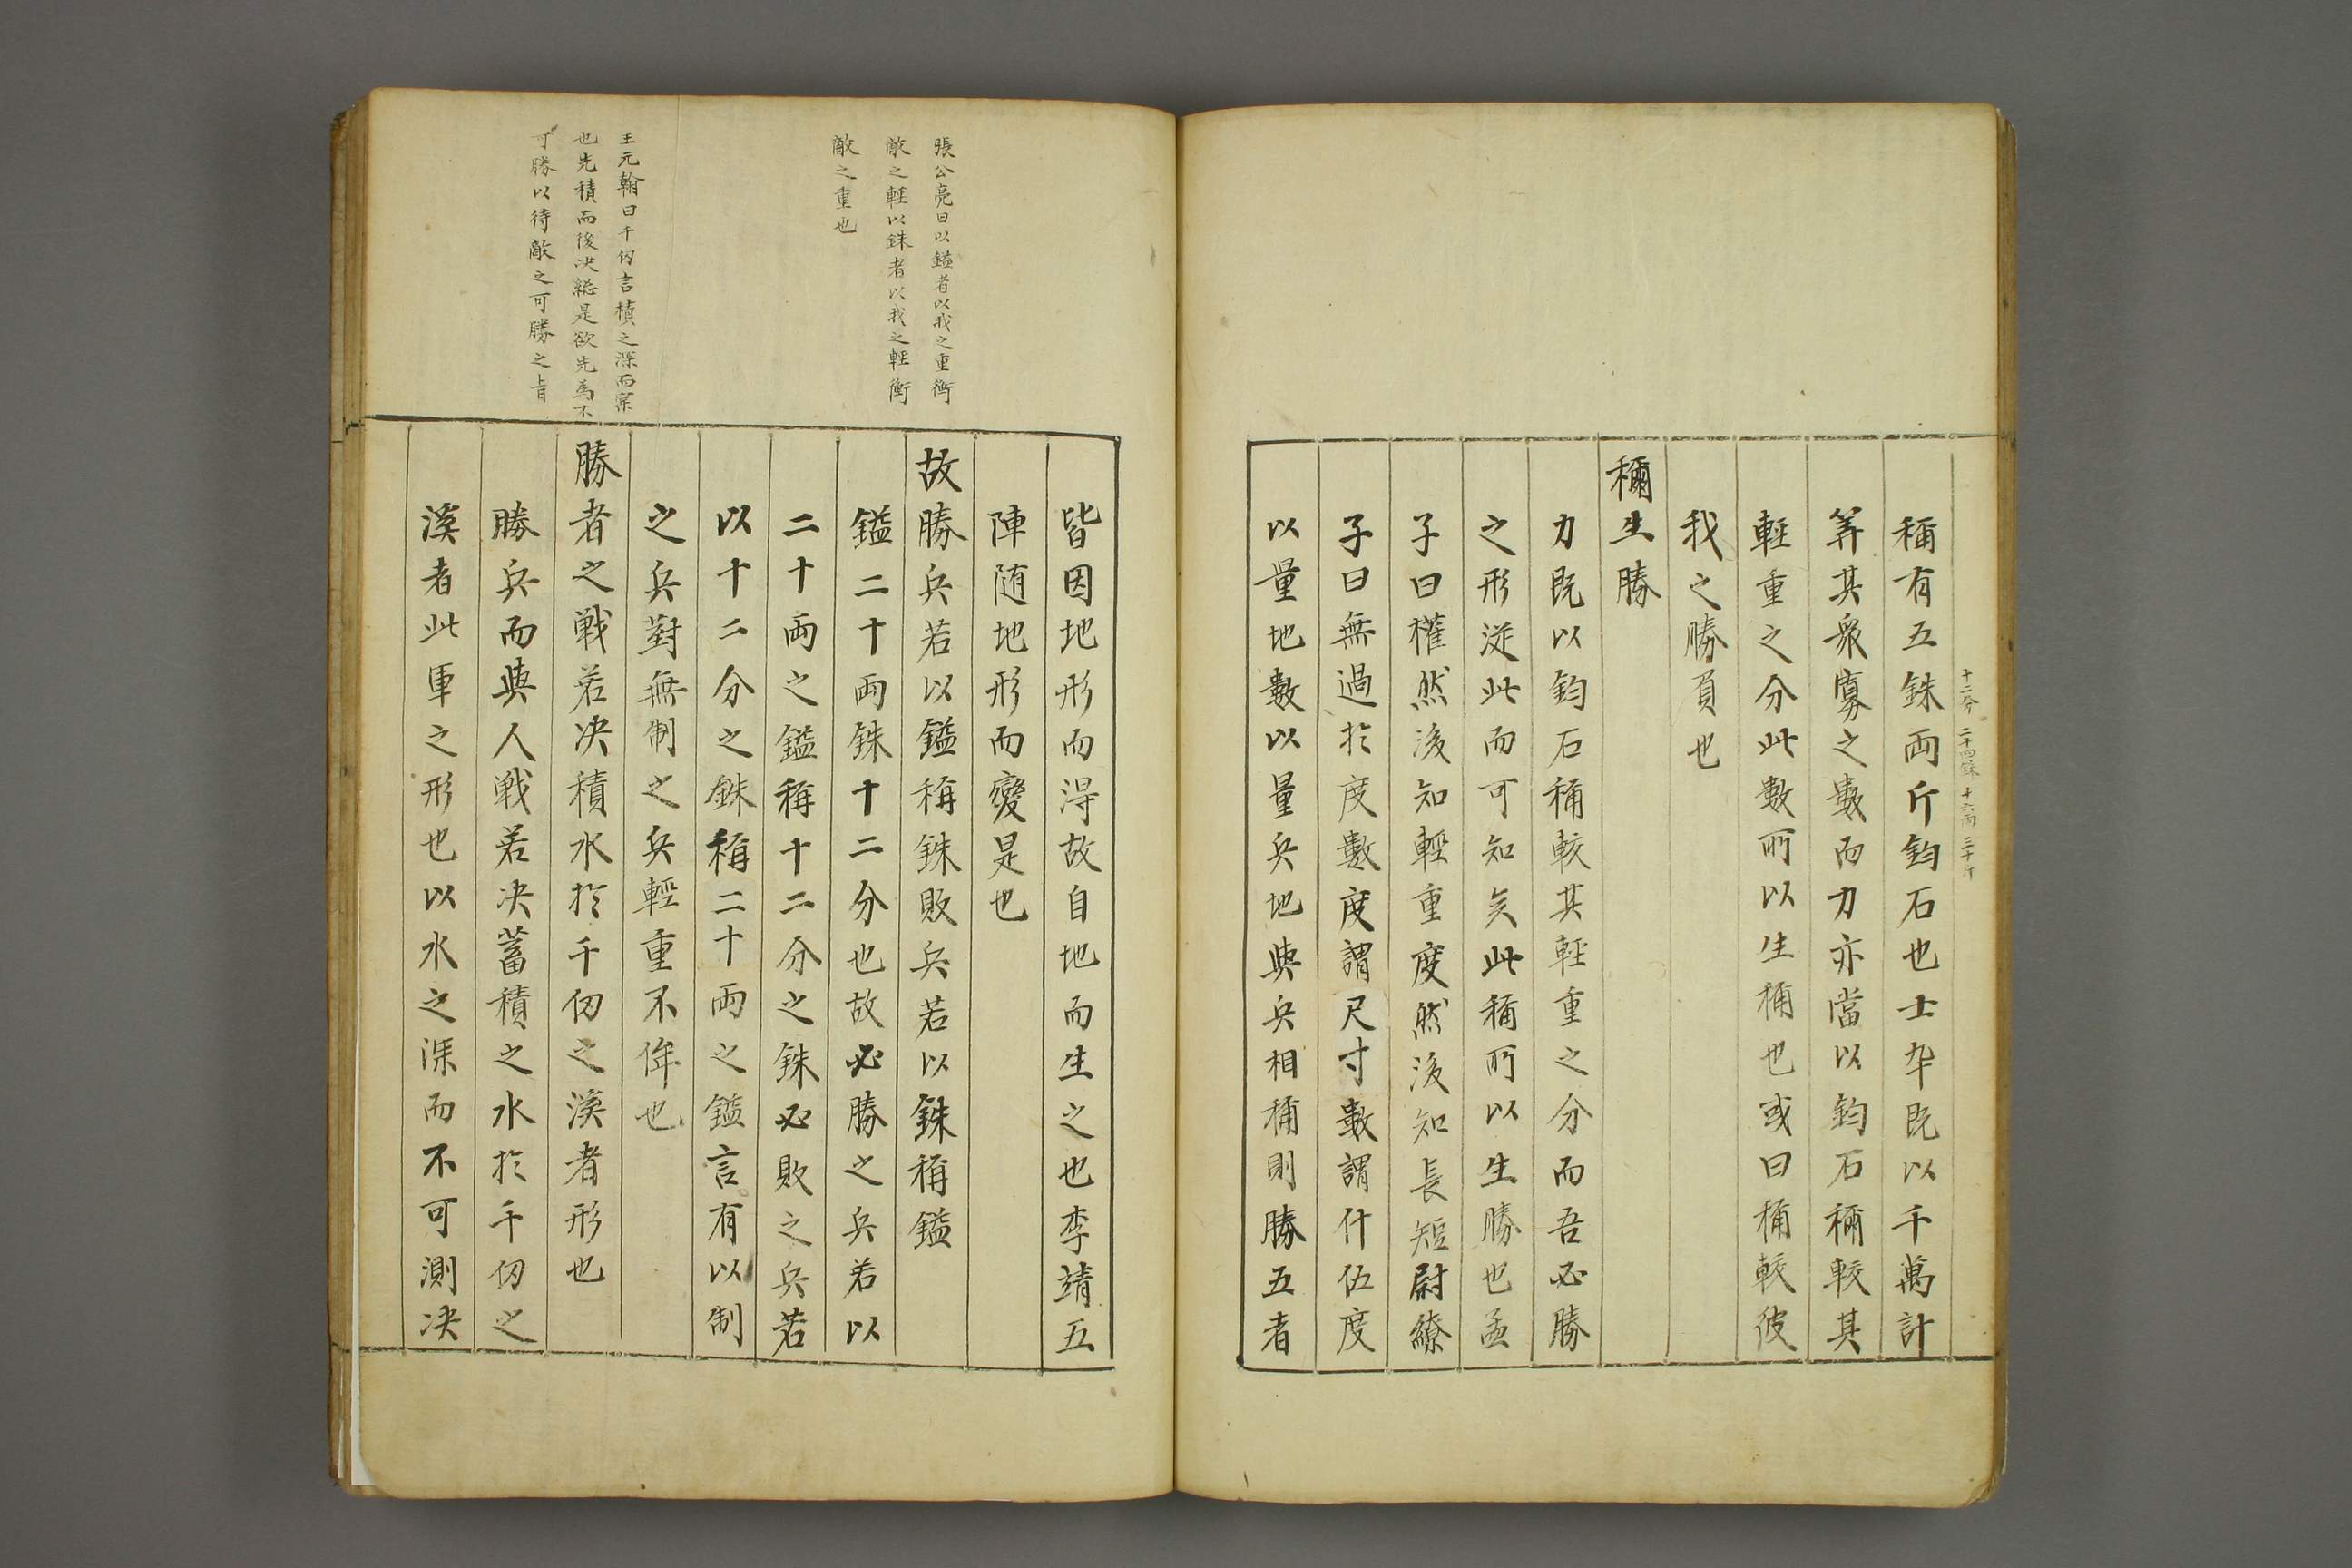 十二分 二十四銖 十六両 三十斤
稱有五銖両斤鈞石也士卒既以千萬計
筭其衆寡之數而力亦當以鈞石稱較其
輕重之分此數所以生稱也或曰稱較彼
我之勝負也
稱生勝
力既以鈞石稱較其輕重之分而吾必勝
之形従此而可知矣此稱所以生勝也孟
子曰權然後知輕重度然後知長短尉繚
子曰無過於度數度謂尺寸數謂什伍度
以量地數以量兵地與兵相稱則勝五者
皆因地形而得故自地而生之也李靖五
陣随地形而變是也
故勝兵若以鎰稱銖敗兵若以銖稱鎰
鎰二十両銖十二分也故必勝之兵若以
二十両之鎰稱十二分之銖必敗之兵若
以十二分之銖稱二十両之鎰言有以制
之兵對無制之兵輕重不侔也
勝者之戦若决積水於千仭之渓者形也
勝兵而與人戦若决蓄積之水於千仭之
渓者此軍之形也以水之深而不可測决
張公亮曰以鎰者以我之重衡
敵之輕以銖者以我之輕衡
敵之重也
王元翰曰千仭言積之深而窾
也先積而後决総是欲先為不
可勝以待敵之可勝之旨